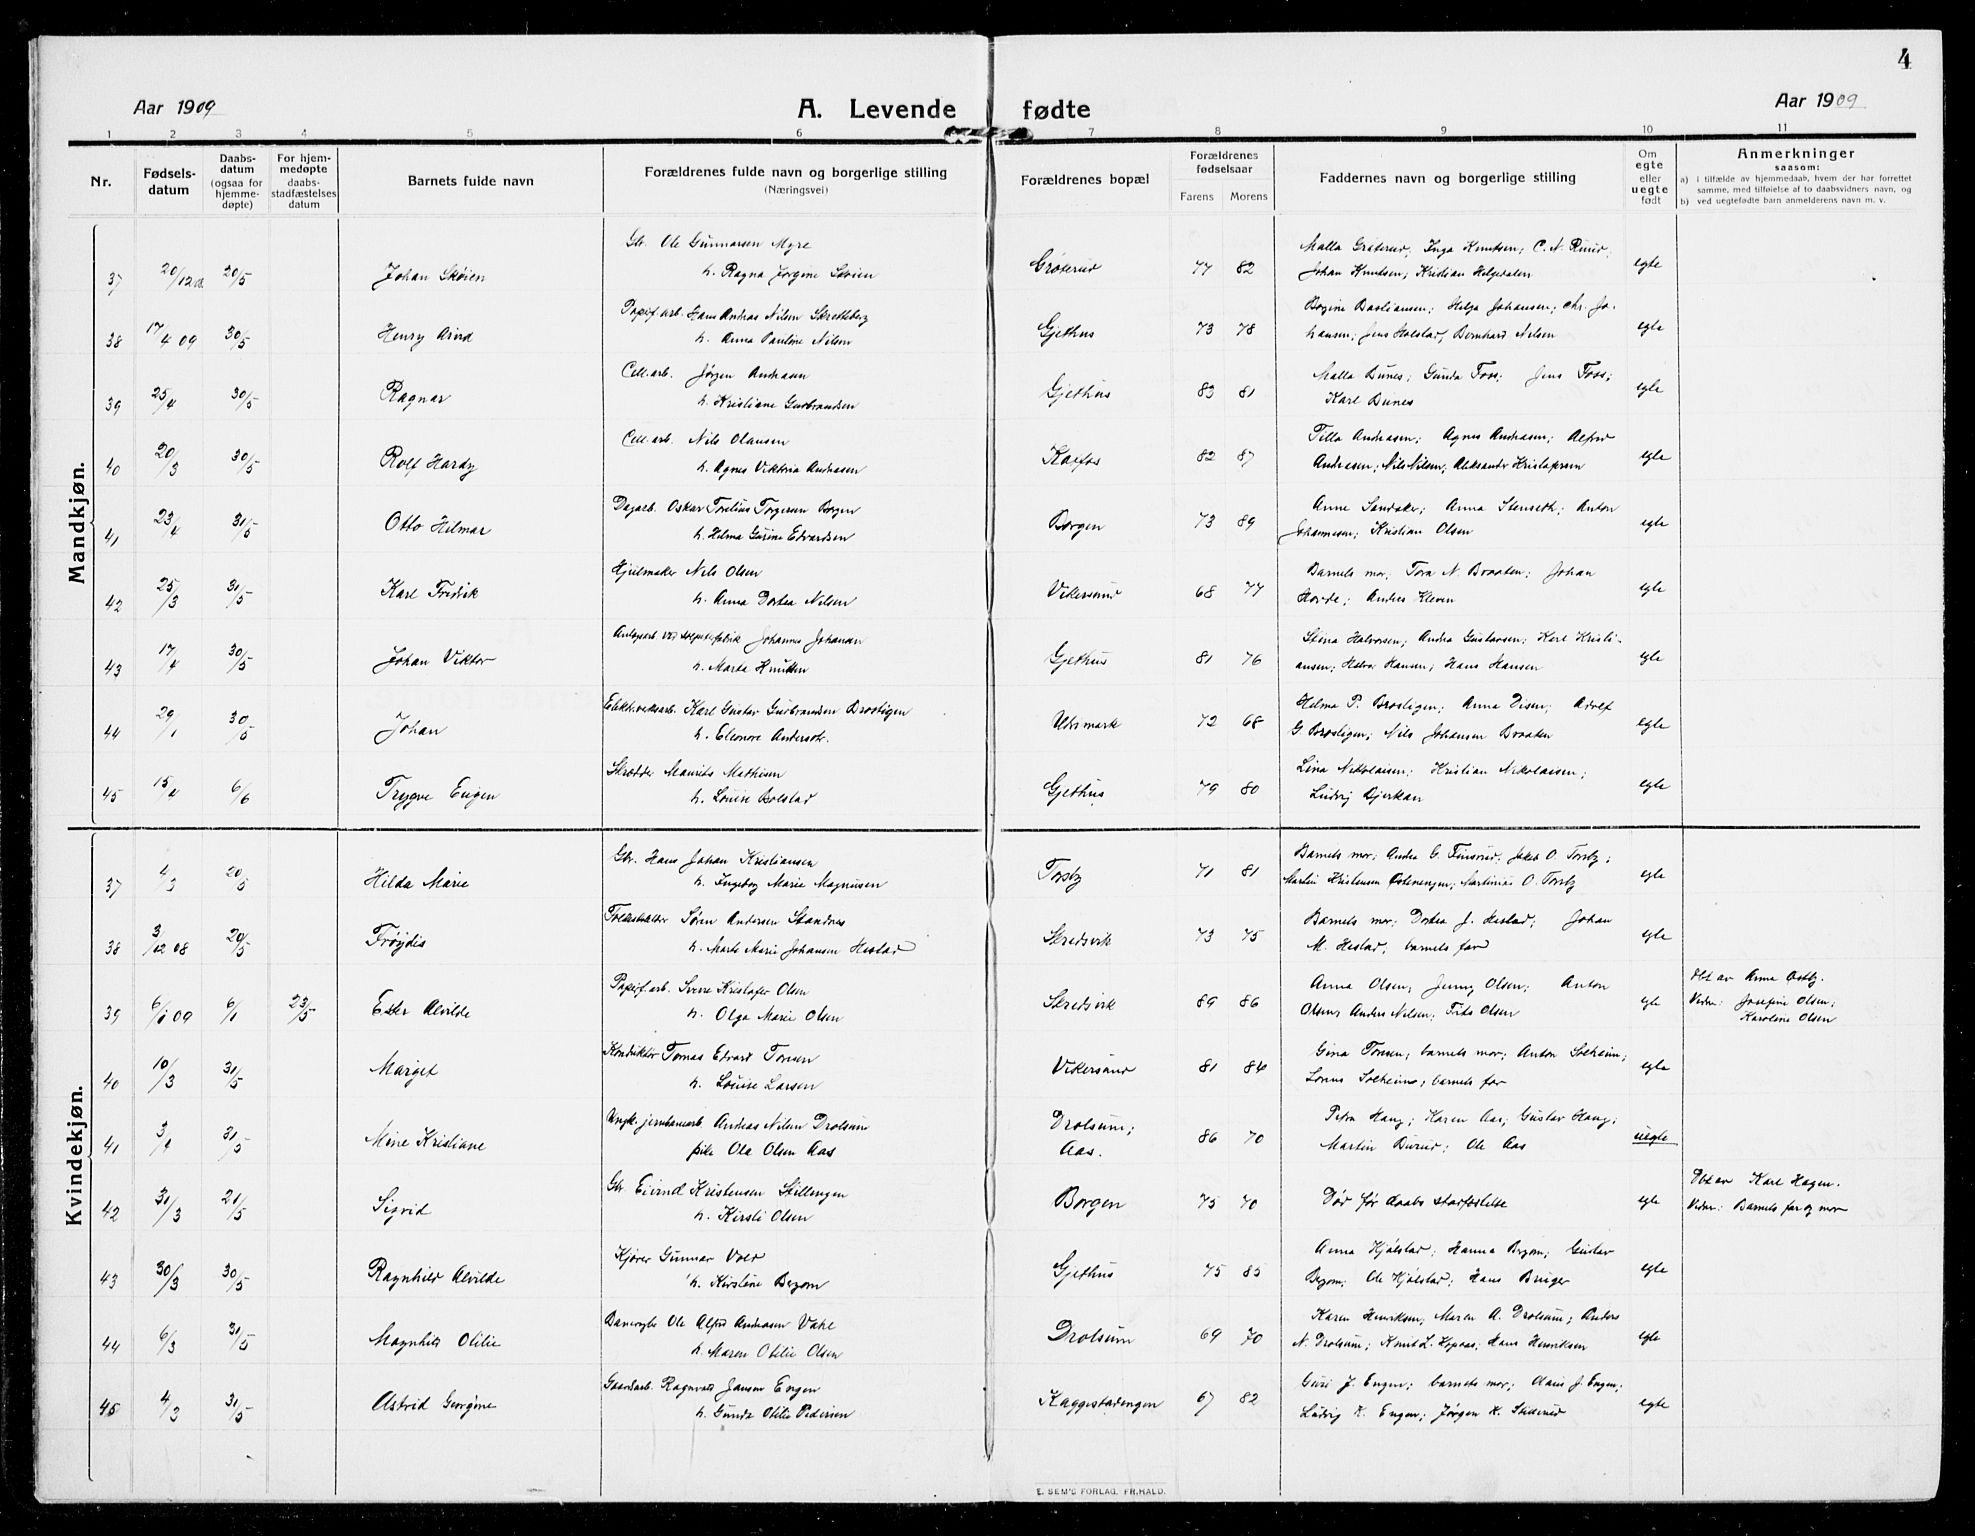 4
Aar 1909
A. Levende fødte
Aar 1909
1 2 3 4 5 6 7 8 9 10 11
Nr.
Fødsels-
datum
Daabs-
datum
(ogsaa for
hjemme-
døpte)
For hjem-
medøpte
daabs-
stadfæstelses
datum
Barnets fulde navn
Forældrenes fulde navn og borgerlige stilling
(Næringsvei)
Forældrenes bopæl
Forældrenes
fødselsaar
Farens Morens
Faddernes navn og borgerlige stilling
Om
egte
eller
uegte
født
Anmerkninger
saasom:
a) i tilfælde av hjemmedaab, hvem der har forrettet
samme, med tilføielse af to daabsvidners navn, og
b) ved uegtefødte barn anmelderens navn m. v.
Mandkjøn.
Gbr. Ole Gunnarsen Myre
Malla Grøterud; Inga Knutsen; C. N. Ruud;
37 20/12 08 20/5 Johan Skøien h. Ragna Jørgine Skøien Grøterud 77 82 Johan Knutsen; Kristian Helgedalen egte
Papirf.arb. Hans Andreas Nilsen Skretteberg
Bogine Bastiansen; Helga Johansen; Chr. Jo-
38 17/4 09 30/5 Henry Arvid h. Anna Pauline Nilsen Gjethus 73 78 hansen; Jens Holstad, Bernhard Nilsen egte
Cell.arb. Jørgen Andreasen
Malla Bunes; Gunda Foss; Jens Foss;
39 25/4 30/5 Ragnar h. Kristiane Gudbrandsen Gjethus 83 81 Karl Bunes egte
Cell.arb. Nils Olausen
Tilla Andreasen; Agnes Andreasen; Alfred
40 20/3 30/5 Rolf Hardy h. Agnes Viktoria Andreasen Kaffos 82 87 Andreasen; Nils Nilsen; Aleksander Kristofersen egte
Dagarb. Oskar Torelius Torgersen Borgen
Anne Sandaker; Anna Stenseth; Anton
41 23/4 31/5 Otto Hilmar h. Helma Gurine Edvardsen Borgen 73 89 Johannesen; Kristian Olsen egte
Hjulmaker Nils Olsen
Barnets mor; Tora N. Braaten; Johan
42 25/3 31/5 Karl Fredrik h. Anna Dortea Nilsen Vikersund 68 77 Hovde; Andreas Kleven egte
Johannes Johansen
Stina Halvorsen; Andrea Gustavsen; Karl Kristi-
43 17/4 30/5 Johan Viktor h. Marta Knutsen Gjethus 81 76 ansen; Halvor Hansen; Hans Hansen egte
Elektr.verksarb. Karl Gustav Gudbrandsen Brostigen
Helma P. Brostigen; Anna Disen; Adolf
44 29/1 30/5 Johan h. Eleonore Andersdr. 72 68 G. Brostigen; Nils Johansen Braaten egte
Skrædder Maurits Mathisen
Lina Nikolaisen; Kristian Nikolaisen;
45 15/4 6/6 Trygve Eugen h. Louise Bolstad Gjethus 79 80 Ludvig Djerkan egte
Kvindekjøn.
Gbr. Hans Johan Kristiansen
Barnets mor; Andrea G. Finsrud; Jakob O. Torsby;
37 4/3 20/5 Hilda Marie h. Ingeborg Marie Magnussen Torsby 71 81 Martin Kristensen Østenengen; Martinius O. Torsby egte
Søren Andersen Standnes
Barnets mor; Dortea J. Hestad; Johan
38 3/12 08 20/5 Frøydis h. Marte Marie Johansen Hestad Skredsvik 73 75 M. Hestad; barnets far egte
Papirf.arb. Sverre Kristofer Olsen
Anna Olsen; Jenny Olsen; Anton
Dbt av Anna Østby.
39 6/1 09 6/1 23/5 Ester Alvilde h. Olga Marie Olsen Skredsvik 89 86 Olsen; Anders Nilsen; Frits Olsen egte Vidner: Josefine Olsen;
Karoline Olsen
Konduktør Tomas Edvard Tonsen
Gina Tonsen; barnets mor; Anton Solheim;
40 10/3 31/5 Marget h. Louise Larsen Vikersund 81 84 Lovus Solheim; barnets far egte
Ungk. jernbanearb. Andreas Nilsen Drolsum
Drolsum;
Petra Haug; Karen Aas; Gustav Haug;
41 3/4 31/5 Mine Kristiane pike Ola Olsen Aas Aas. 86 70 Martin Burud; Ole Aas uegte
Gbr Eivind Kristensen Stillengen
Dbt av Karl Hagen.
42 31/3 21/5 Sigrid h. Kirsti Olsen Borgen 75 70 Død før daabs stadfæstelse egte Vidner: Barnets far og mor
Kjører Gunnar Vold
Anna Hjølstad; Hanna Bergom; Gustav
43 30/3 30/5 Ragnhild Alvilde h. Kirstine Bergom Gjethus 75 85 Bergom; Ole Hjølstad; Hans Bruger egte
Banevogter Ole Alfred Andreasen Vake
Karen Henriksen; Maren A. Drolsum; Anders
44 6/3 31/5 Magnhild Otilie h. Maren Otilie Olsen Drolsum 69 70 N. Drolsum; Knut L. Kopaas; Hans Henriksen egte
Gaardarb. Ragnvald Jansen Engen
Guri J. Engen; barnets mor; Claus J. Engen;
45 4/3 31/5 Astrid Georgine h. Gunda Otilie Pedersen Kaggestadengen 67 82 Ludvig K. Engen; Jørgen K. Stiderud egte
E. SEM'S FORLAG. FR.HALD.